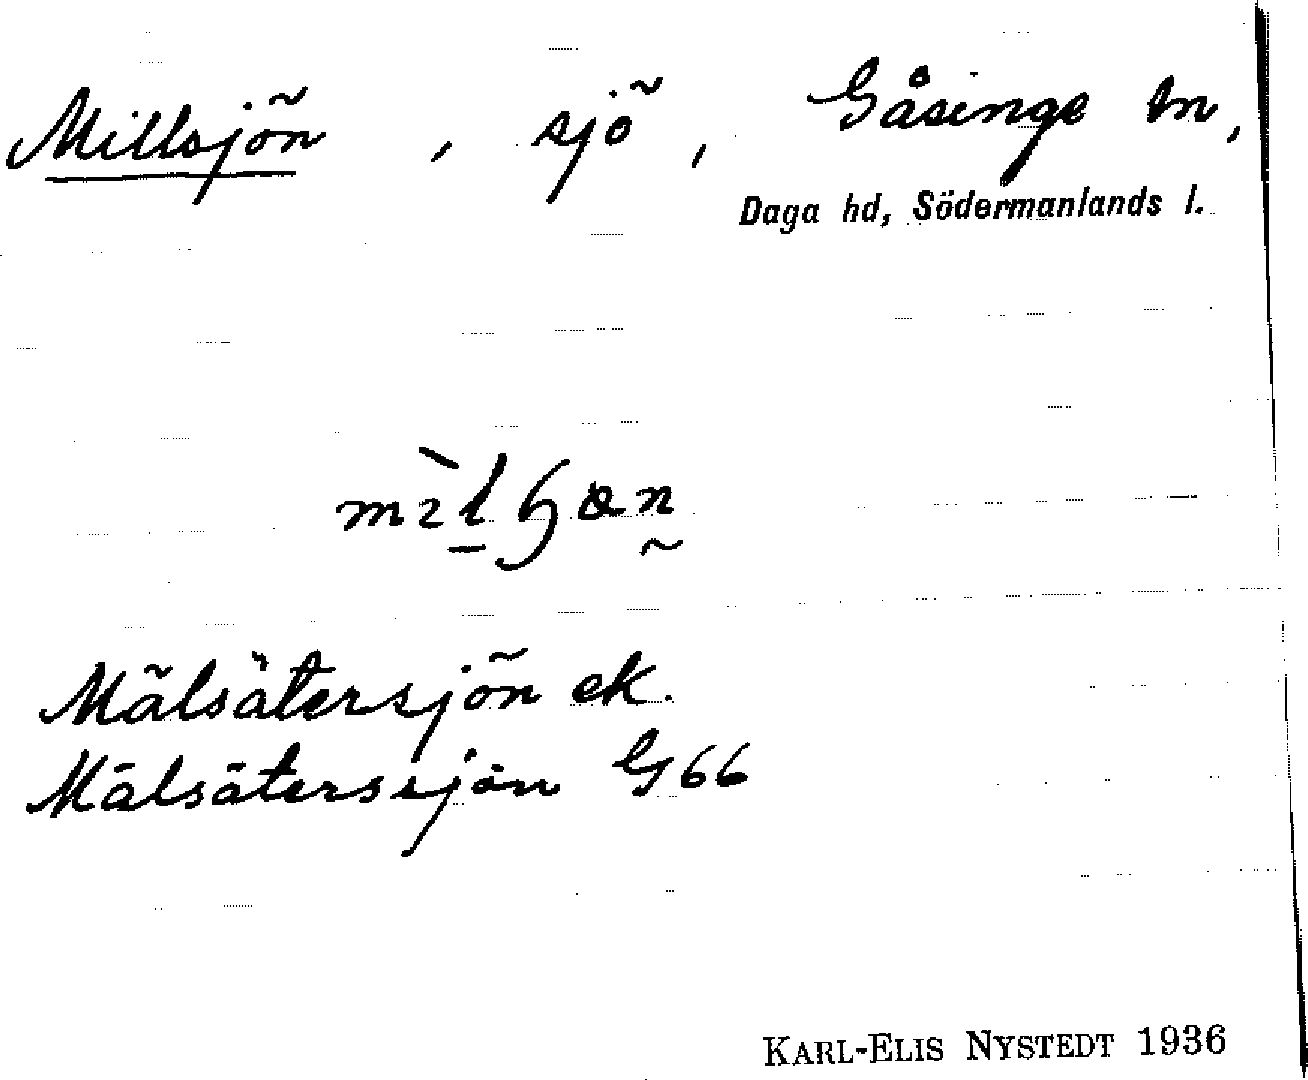 Millsjön, sjö, Gåsinge sn,
Daga hd, Södermanlands l.
Mälsätersjön ek.
Mälsäterssjön G66
KARL-ELIS NYSTEDT 1936